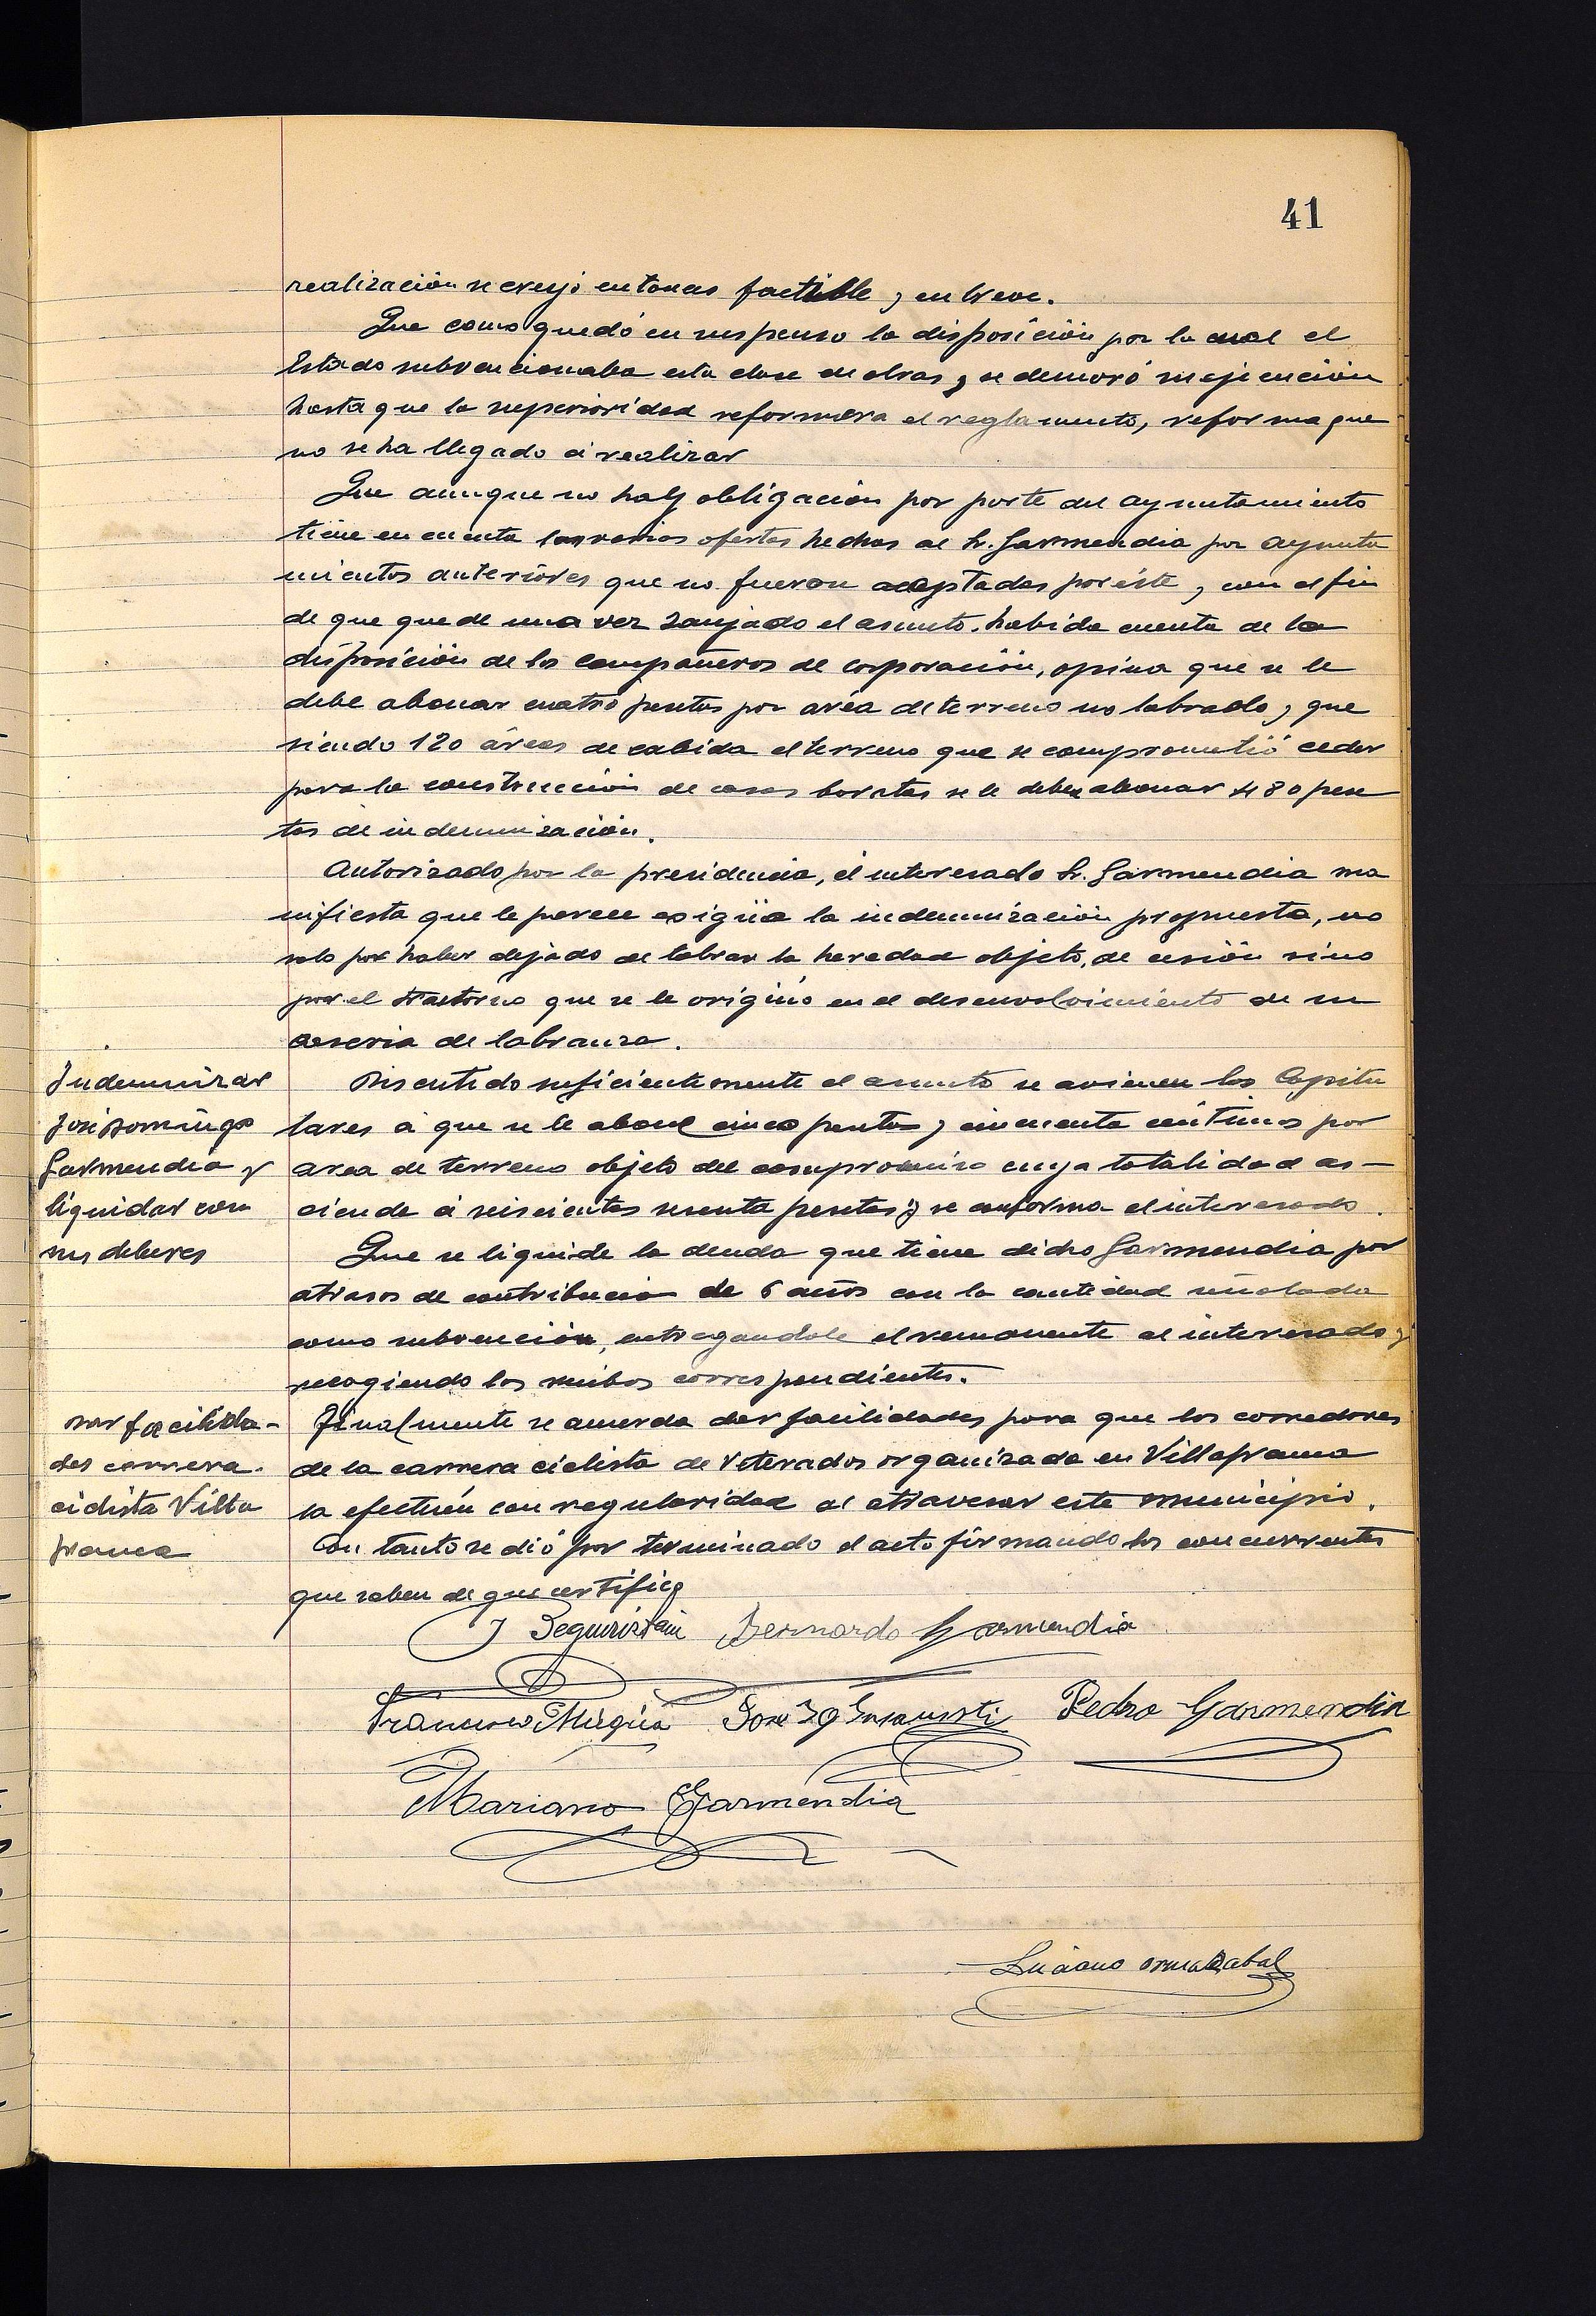 41
realización se creyó entonces factible y en breve.
Que como quedó en suspenso la disposición por la cual el
Estado subvencionaba esta clase de obras, se demoró su ejecución
hasta que la superioridad reformara el reglamento, reforma que
no se ha llegado á realizar
Que aunque no hay obligación por parte del ayuntamiento
tiene en cuenta las varias ofertas hechas al Sr. Garmendia por ayunta
mientos anteriores que no fueron aceptadas por éste y con el fin
de que quede una vez zanjado el asunto, habida cuenta de la
disposición de los compañeros de corporación, opina que se le
debe abonar cuatro pesetas por area de terreno no labrado y que
siendo 120 áreas de cabida el terreno que se comprometió ceder
para la construcción de casas baratas se le deben abonar 480 pese
tas de indemnización.
Autorizado por la presidencia, el interesado Sr. Garmendia ma
nifiesta que le parece exigüa la indemnización propuesta, no
solo por haber dejado de labrar la heredad objeto de cesión sino
por el trastorno que se le originó en el desenvolvimiento de su
caseria de labranza.
Indemnizar
José Domingo
Garmendia y
liquidar con
sus deberes
Discutido suficientemente el asunto se avienen los Capitu
lares á que se le abone cinco pesetas y cincuenta céntimos por
area de terreno objeto del compromiso cuya totalidad as-
ciende á seiscientas sesenta pesetas y se conforma el interesado.
Que se liquide la deuda que tiene dicho Garmendia por
atrasos de contribucion de 6 años con la cantidad señalada
como subvención, entregandole el remanente al interesado y
recogiendo los recibos correspondientes.
Dar facilida-
des carrera
ciclista Villa
franca
Finalmente se acuerda dar facilidades para que los corredores
de la carrera ciclista de Veterados organizada en Villafranca
la efectuén con regularidad al atravesar este municipio.
Con tanto se dió por terminado el acto firmando los concurrentes
que saben de que certifico
J Seguristain Bernardo Garmendia
Francisco Múgica José Ig Insausti Pedro Garmendia
Mariano Garmendia
Luciano Ormazabal